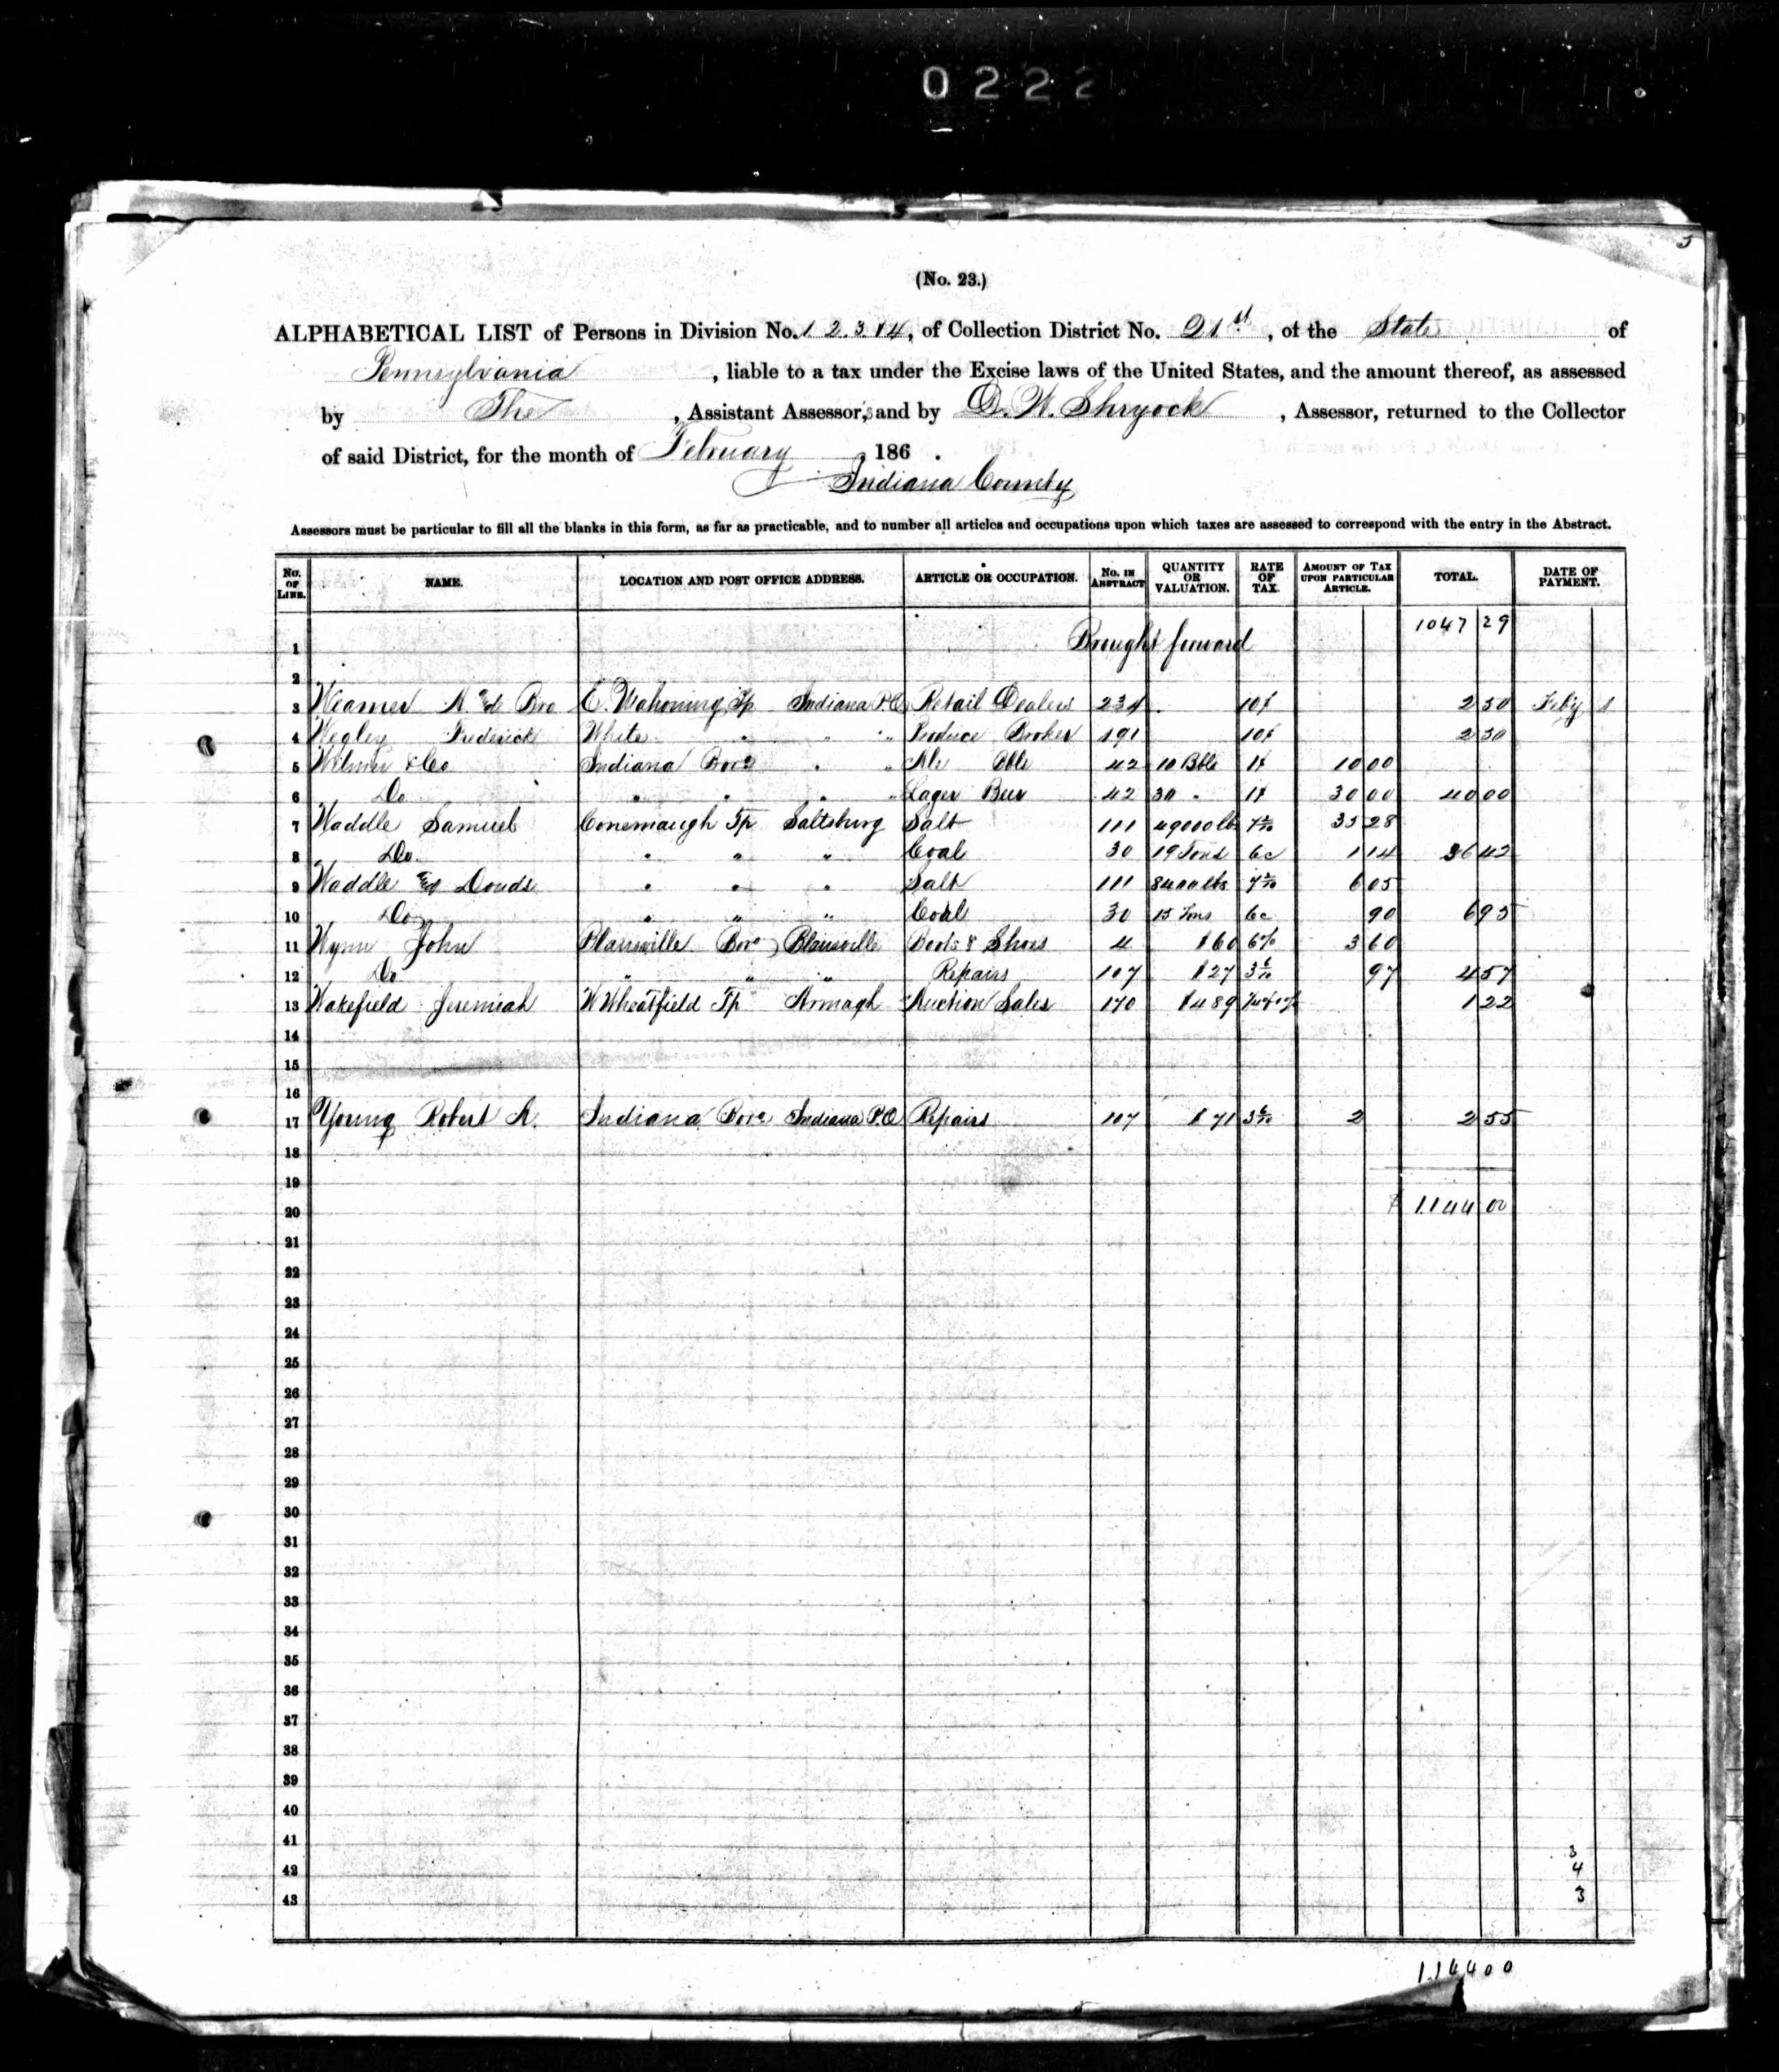 0222
(No. 23.)
ALPHABETICAL LIST of Persons in Division No. 1 2. 3 & 4, of Collection District No. 21st, of the State of
Pennsylvania, liable to a tax under the Excise laws of the United States, and the amount thereof, as assessed
by The, Assistant Assessor,s and by D. W. Shryock, Assessor, returned to the Collector
of said District, for the month of February, 186 .
Indiana County
Assessors must be particular to fill all the blanks in this form, as far as practicable, and to number all articles and occupations upon which taxes are assessed to correspond with the entry in the Abstract.
No. OF LINE. NAME. LOCATION AND POST OFFICE ADDRESS. ARTICLE OR OCCUPATION. No. IN ABSTRACT QUANTITY OR VALUATION. RATE OF TAX. AMOUNT OF TAX UPON PARTICULAR ARTICLE. TOTAL. DATE OF PAYMENT.
1 Brought forward 1047 29
2
3 Weamer & Bro E. Mahoning Tp Indiana P.O Retail Dealers 234 10 2 50
4 Wegley Frederick White " " " Produce Broker 191 10
5 & Co Indiana Boro " " Ale 42 10 Bbls 1 10 00
6 Do " " " " Lager Beer 42 30 " 1 30 00 40 00
7 Waddle Samuel Conemaugh Tp Saltsburg Salt 111 49000 lb 35 28
8 Do " " " Coal 30 19 Tons 6c 1 14 36 42
9 Waddle & Douds " " " Salt 111 8400 lbs 6 05
10 Do " " " Coal 30 15 Tons 6c 90 6 95
11 Wynn John Blairsville Boro Blairsville Boots & Shoes 4 $60 6% 3 60
12 Do " " " Repairs 107 $27 3 6/10 97 4 57
13 Wakefield Jeremiah W Wheatfield Tp Armagh Auction Sales 170 $489 1 22
14
15
16
17 Young Robert A. Indiana Boro Indiana P.O Repairs 107 $71 3 6/10 2 2 55
18
19
20 $ 1144 00
21
22
23
24
25
26
27
28
29
30
31
32
33
34
35
36
37
38
39
40
41
42
43
3
4
3
1144 00